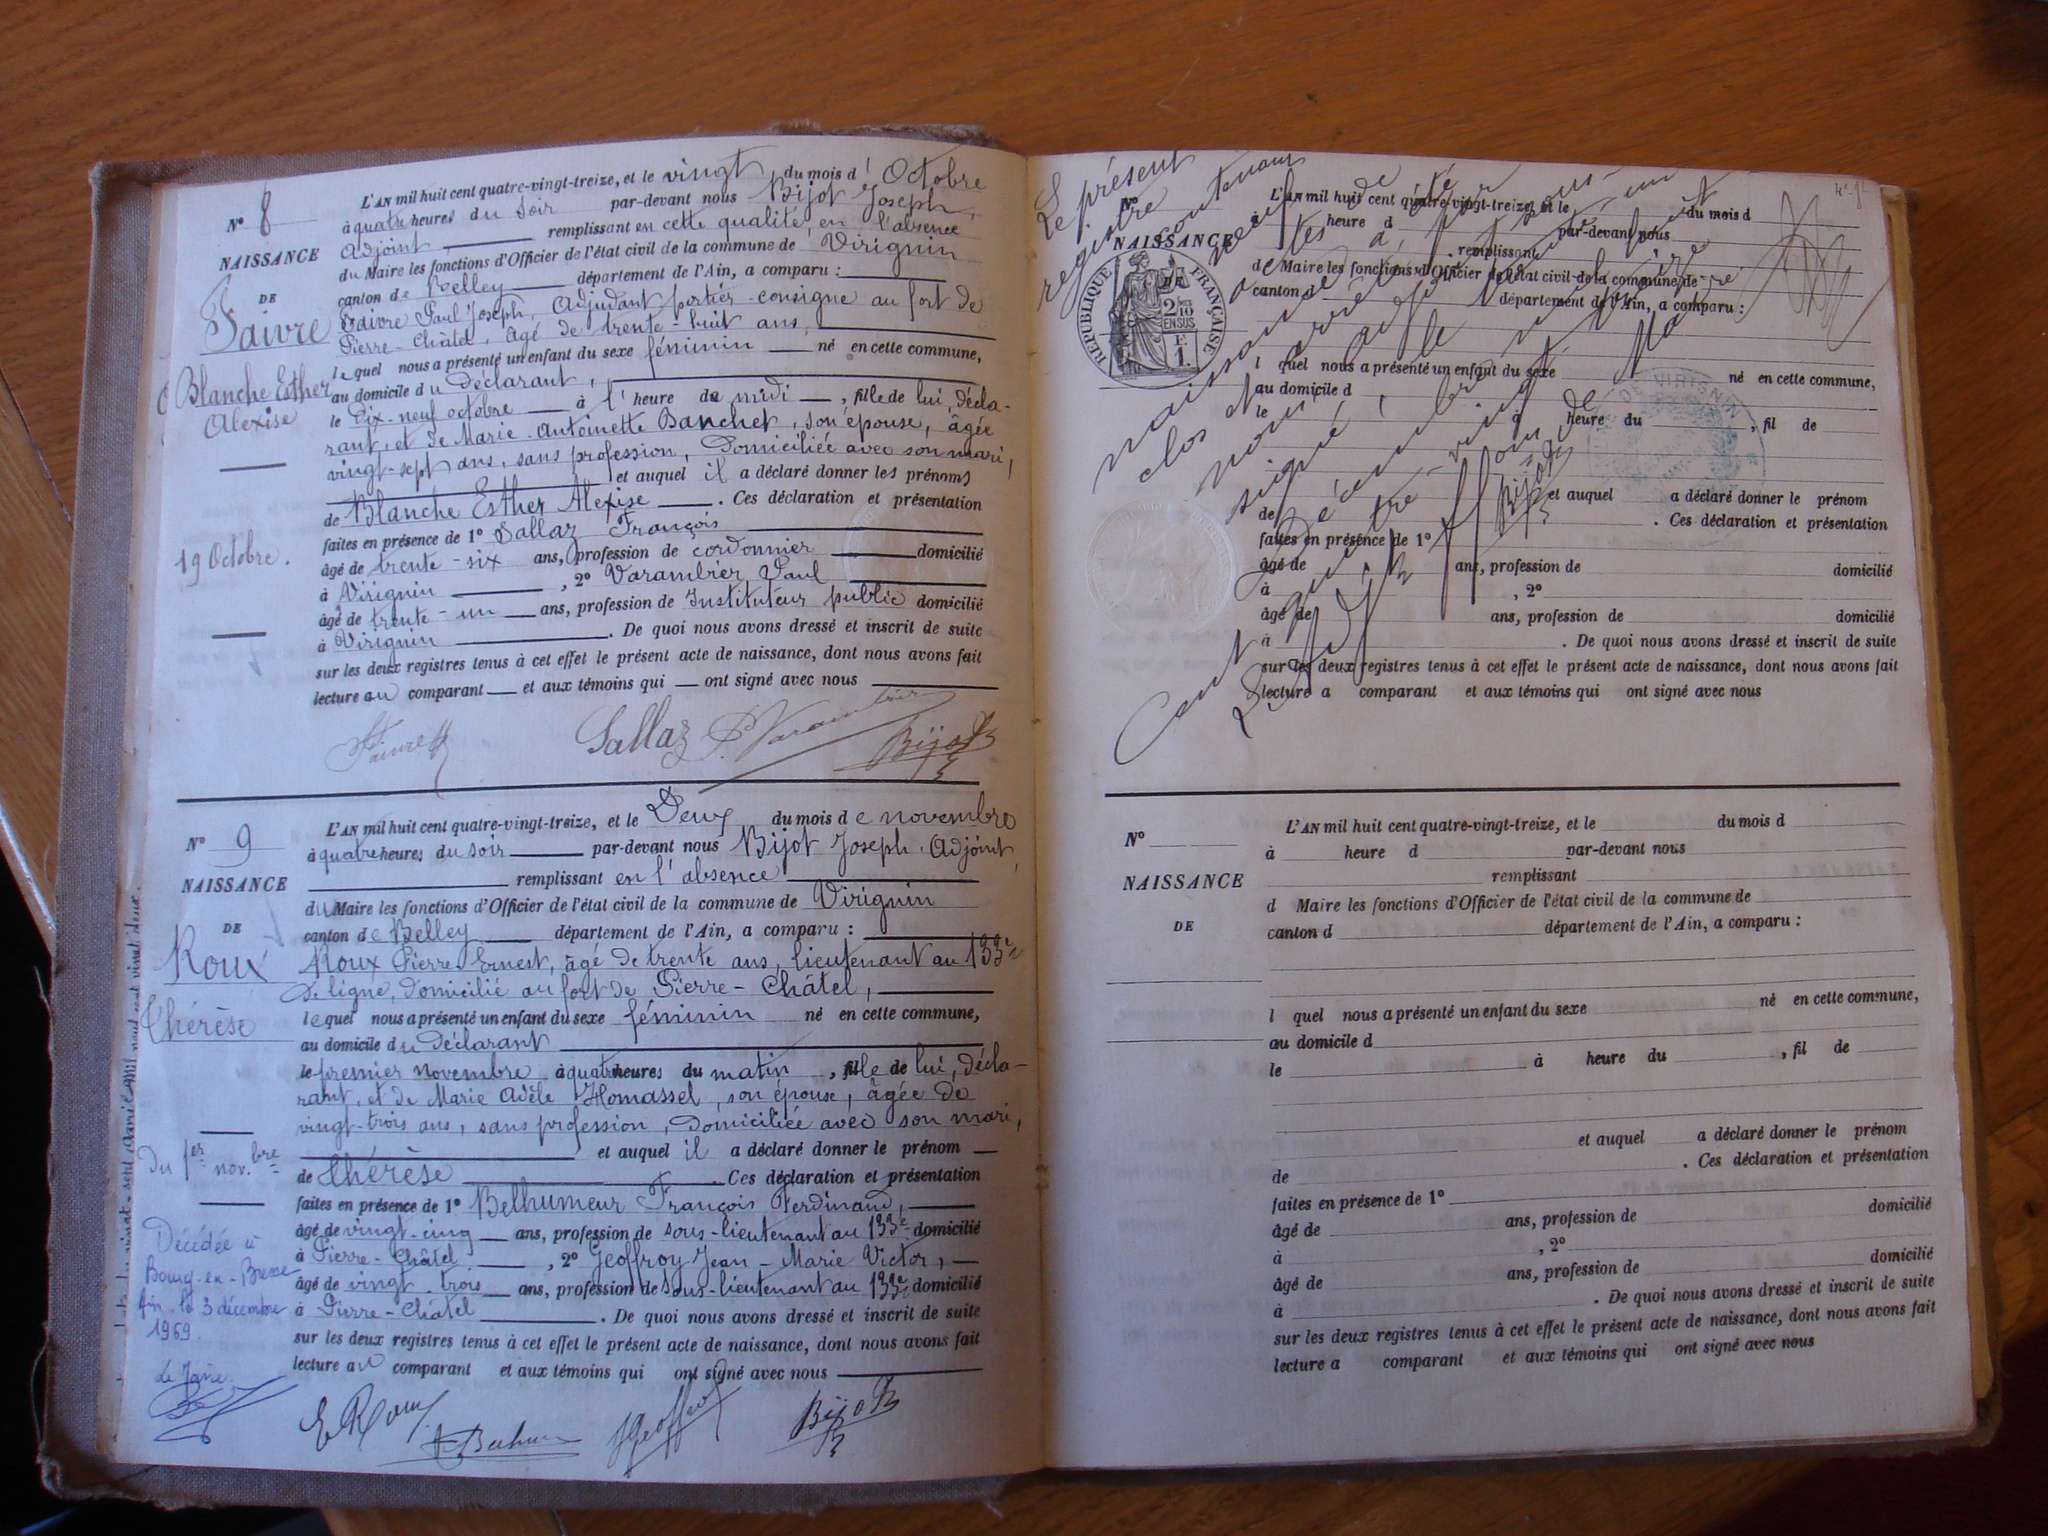 N° 8
NAISSANCE
DE
Faivre
Blanche Esther
Alexise
19 Octobre.
L'AN mil huit cent quatre-vingt-treize, et le vingt du mois d'Octobre
à quatre heures du soir par-devant nous Bijot Joseph,
Adjoint remplissant en cette qualité en l'absence
du Maire les fonctions d'Officier de l'état civil de la commune de Virignin
canton de Belley département de l'Ain, a comparu :
Faivre Paul Joseph, Adjudant portier-consigne au fort de
Pierre-Châtel, âgé de trente-huit ans,
lequel nous a présenté un enfant du sexe féminin né en cette commune,
au domicile du déclarant,
le dix-neuf octobre à l'heure de midi, fille de lui, décla-
rant, et de Marie-Antoinette Banchet, son épouse, âgée
vingt-sept ans, sans profession, domiciliée avec son mari,
et auquel il a déclaré donner les prénoms
de Blanche Esther Alexise. Ces déclaration et présentation
faites en présence de 1° Sallaz François
âgé de trente-six ans, profession de cordonnier domicilié
à Virignin, 2° Varambier Paul
âgé de trente-un ans, profession de Instituteur public domicilié
à Virignin. De quoi nous avons dressé et inscrit de suite
sur les deux registres tenus à cet effet le présent acte de naissance, dont nous avons fait
lecture au comparant et aux témoins qui ont signé avec nous
Faivre Sallaz P. Varambier Bijot
N° 9
NAISSANCE
DE
Roux
Thérèse
Du 1er nov.bre
Décédée à
Bourg-en-Bresse
Ain le 3 décembre
1969.
Le Maire.
L'AN mil huit cent quatre-vingt-treize, et le Deux du mois de novembre
à quatre heures du soir par-devant nous Bijot Joseph, Adjoint,
remplissant en l'absence
du Maire les fonctions d'Officier de l'état civil de la commune de Virignin
canton de Belley département de l'Ain, a comparu :
Roux Pierre Ernest, âgé de trente ans, lieutenant au 133e
de ligne, domicilié au fort de Pierre-Châtel,
lequel nous a présenté un enfant du sexe féminin né en cette commune,
au domicile du déclarant
le premier novembre à quatre heures du matin, fille de lui, décla-
rant, et de Marie Adèle Homassel, son épouse, âgée de
vingt-trois ans, sans profession, domiciliée avec son mari,
et auquel il a déclaré donner le prénom
de Thérèse. Ces déclaration et présentation
faites en présence de 1° Belhumeur François Ferdinand,
âgé de vingt-cinq ans, profession de sous-lieutenant au 133e domicilié
à Pierre-Châtel, 2° Geoffroy Jean-Marie Victor,
âgé de vingt-trois ans, profession de sous-lieutenant au 133e domicilié
à Pierre-Châtel. De quoi nous avons dressé et inscrit de suite
sur les deux registres tenus à cet effet le présent acte de naissance, dont nous avons fait
lecture au comparant et aux témoins qui ont signé avec nous
E Roux Geoffroy Bijot
Le présent
registre contenant
neuf actes de
naissance a été
clos et arrêté par
nous, adjoint sous-
signé, le trente-un
Décembre mil huit
cent quatre-vingt-treize
Bijot
N°
NAISSANCE
DE
RÉPUBLIQUE FRANÇAISE
2/10
EN SUS
F.
1.
DE VIRIGNIN
L'AN mil huit cent quatre-vingt-treize, et le du mois d
à heure d par-devant nous
remplissant
d Maire les fonctions d'Officier de l'état civil de la commune de
canton d département de l'Ain, a comparu :
l quel nous a présenté un enfant du sexe né en cette commune,
au domicile d
le à heure du , fil de
et auquel a déclaré donner le prénom
de . Ces déclaration et présentation
faites en présence de 1°
âgé de ans, profession de domicilié
à , 2°
âgé de ans, profession de domicilié
à . De quoi nous avons dressé et inscrit de suite
sur les deux registres tenus à cet effet le présent acte de naissance, dont nous avons fait
lecture a comparant et aux témoins qui ont signé avec nous
N°
NAISSANCE
DE
L'AN mil huit cent quatre-vingt-treize, et le du mois d
à heure d par-devant nous
remplissant
d Maire les fonctions d'Officier de l'état civil de la commune de
canton d département de l'Ain, a comparu :
l quel nous a présenté un enfant du sexe né en cette commune,
au domicile d
le à heure du , fil de
et auquel a déclaré donner le prénom
de . Ces déclaration et présentation
faites en présence de 1°
âgé de ans, profession de domicilié
à , 2°
âgé de ans, profession de domicilié
à . De quoi nous avons dressé et inscrit de suite
sur les deux registres tenus à cet effet le présent acte de naissance, dont nous avons fait
lecture a comparant et aux témoins qui ont signé avec nous